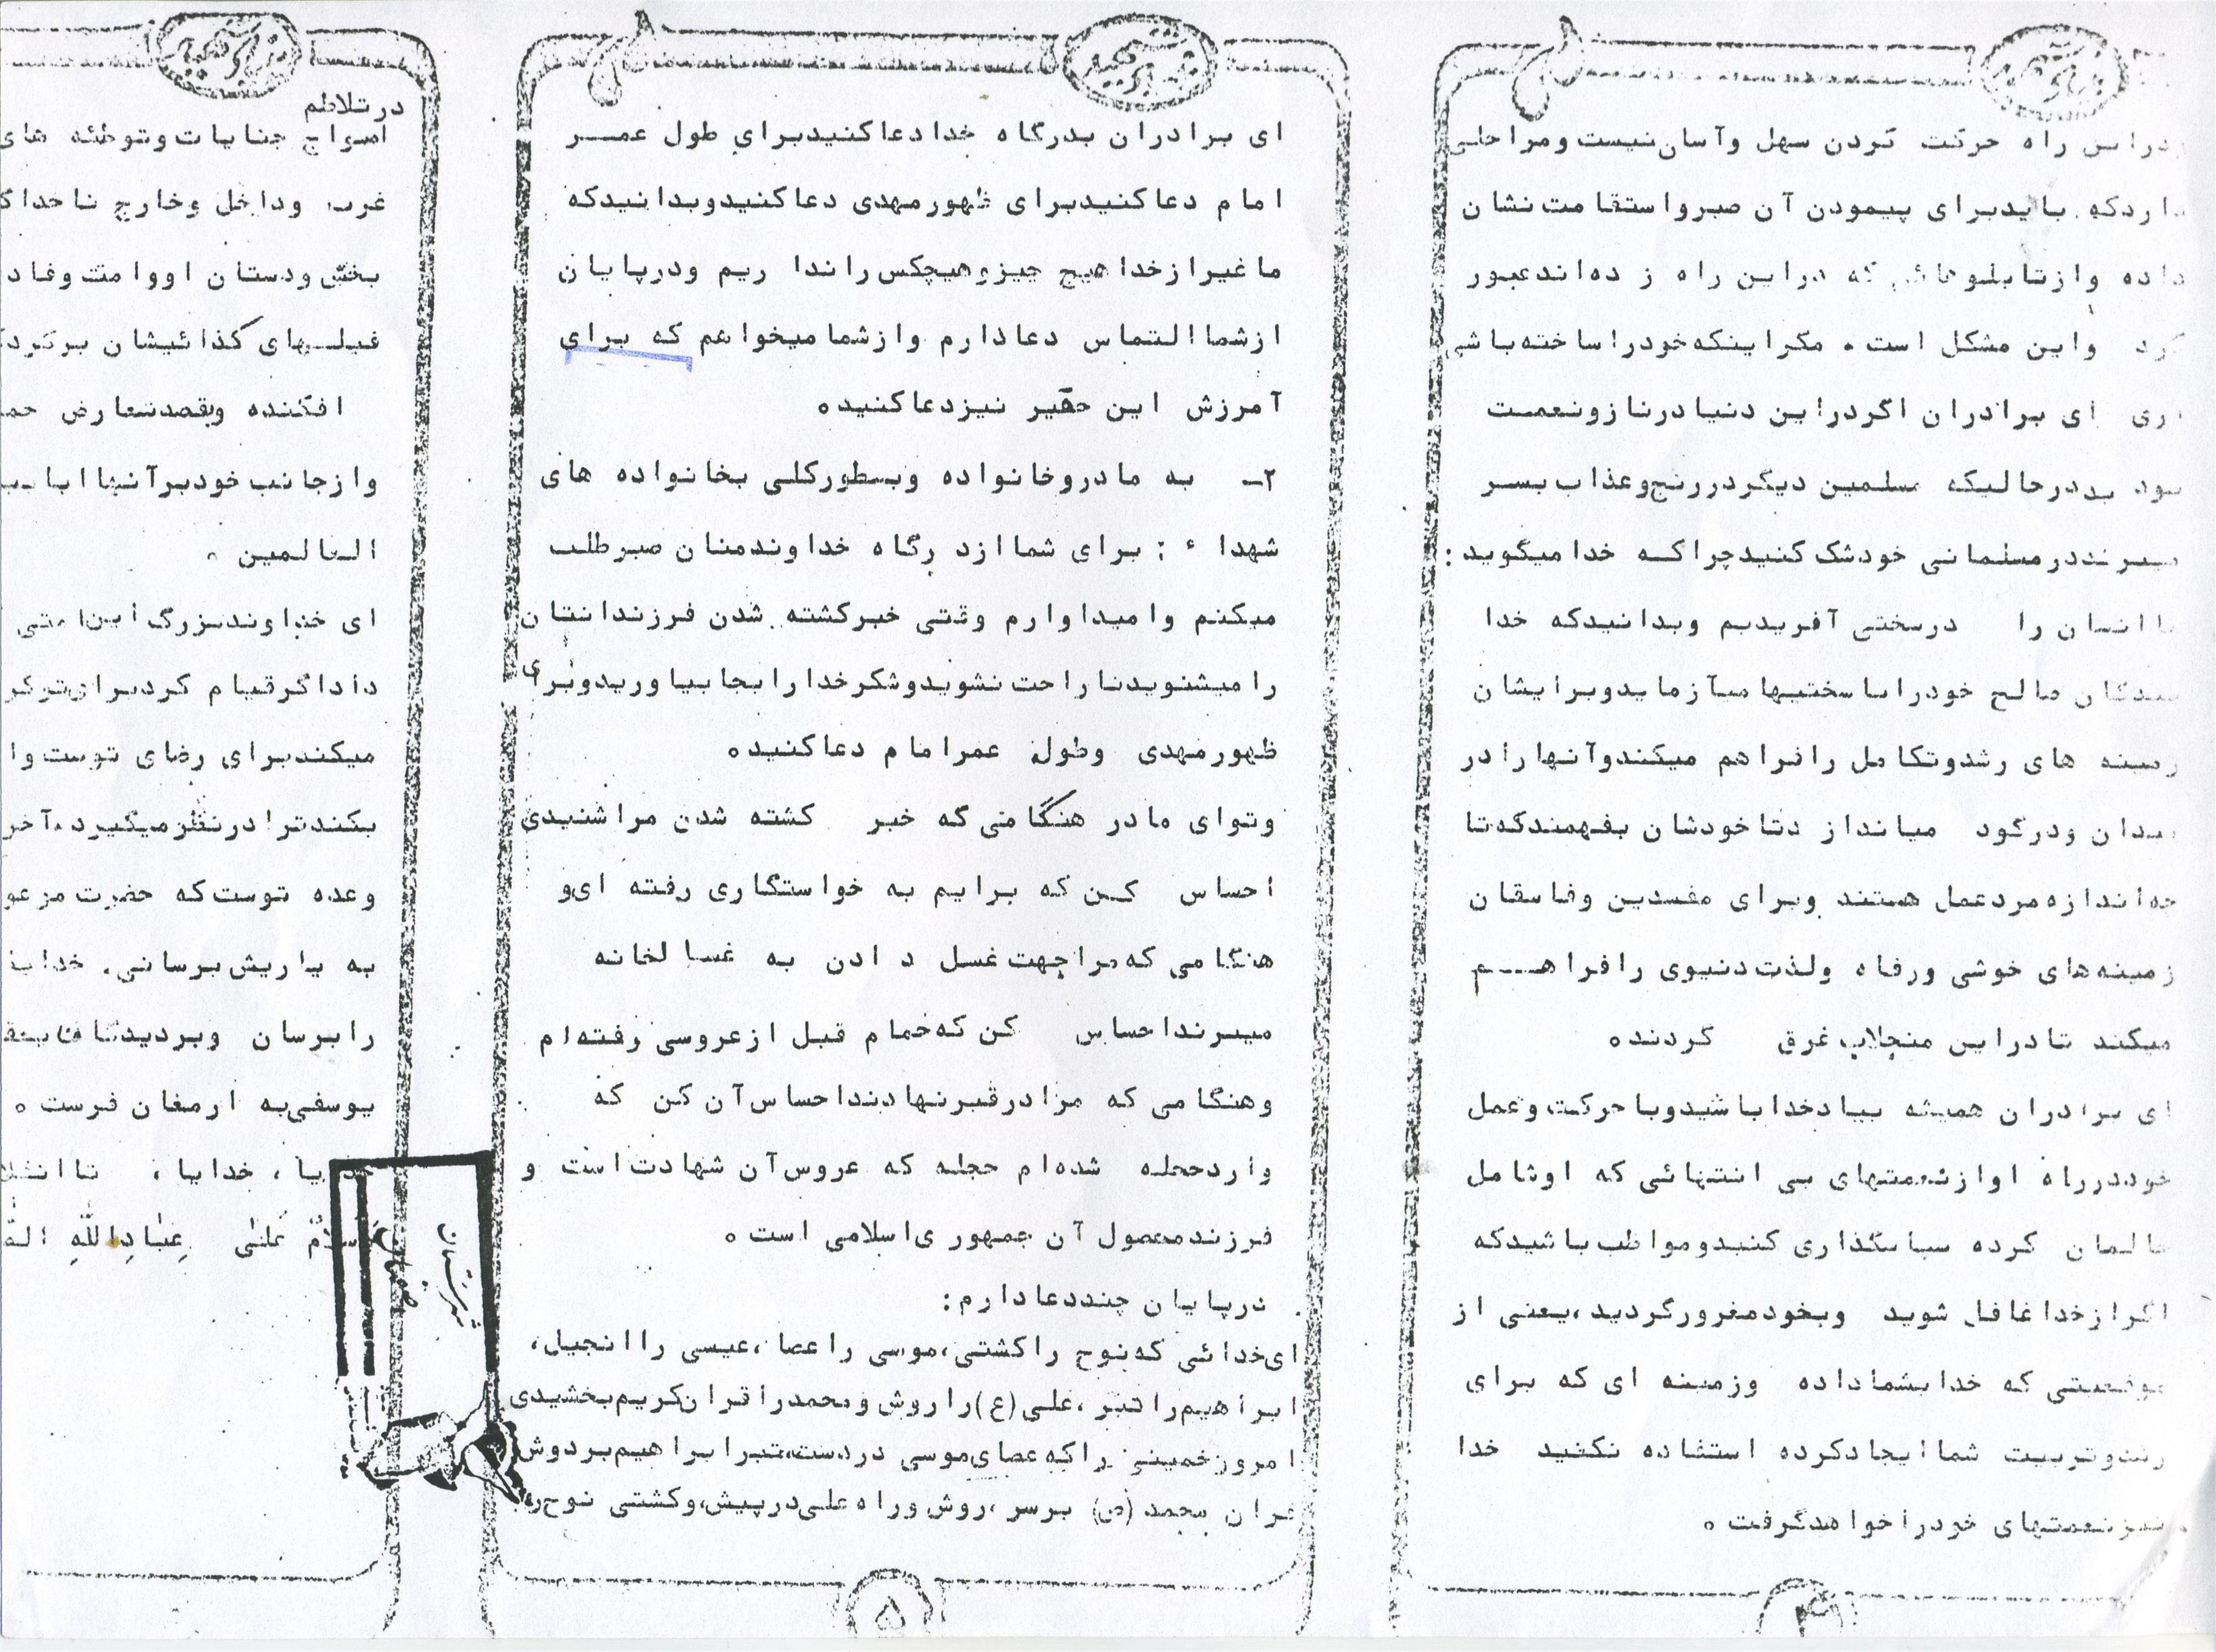 راه حرکت کردن سهل وآسان نیست ومراحلی
داردکه بایدبرای پیمودن آن صبرواستقامت نشان
داده وازتابلوهائی که دراین راه زده‌اندعبور
کرد واین مشکل است. مگراینکه‌خودراساخته‌باشی
آری ای برادران اگردراین دنیادرنازونعمت
درحالیکه مسلمین دیگردررنج‌وعذاب بسر
میبرنددرمسلمانی خودشک کنیدچراکه خدامیگوید:
ما انسان را درسختی آفریدیم وبدانیدکه خدا
بندگان صالح خودرا با سختیهامیآزمایدوبرایشان
زمینه های رشدوتکامل رافراهم میکندوآنهارادر
میدان ودرگود میاندازدتاخودشان بفهمندکه‌تا
چه‌اندازه‌مردعمل هستند وبرای مفسدین وفاسقان
زمینه‌های خوشی ورفاه ولذت‌دنیوی رافراهم
میکند تادراین منجلاب غرق گردنده
ای برادران همیشه بیادخداباشیدوباحرکت‌وعمل
خوددرراه اوازنعمتهای بی انتهائی که اوشامل
حالمان کرده سپاسگذاری کنیدومواظب‌باشیدکه
اگرازخداغافل شوید وبخودمغرورگردید،یعنی از
موقعیتی که خدابشماداده وزمینه ای که برای
رشدوتربیت شماایجادکرده استفاده نکنید خدا
نیزنعمتهای خودراخواهدگرفت ه
۴
ای برادران بدرگاه خدادعاکنیدبرای طول عمر
امام دعاکنیدبرای ظهورمهدی دعاکنیدوبدانیدکه
ماغیرازخداهیچ چیزوهیچکس‌راندا ریم ودرپایان
ازشماالتماس دعادارم وازشمامیخواهم که برای
آمرزش این حقیر نیزدعاکنیده
۲- به مادروخانواده وبطورکلی بخانواده های
شهداء : برای شماازدرگاه خداوندمنان صبرطلب
میکنم وامیداوارم وقتی خبرکشته شدن فرزندانتان
رامیشنویدناراحت نشویدوشکرخدارابجابیاوریدوبرای
ظهورمهدی وطول عمرامام دعاکنیده
وتوای مادر هنگامی‌که خبر کشته شدن مراشنیدی
احساس کن که برایم به خواستگاری رفته ای‌و
هنگامی که‌مراجهت غسل دادن به غسالخانه
میبرنداحساس کن که‌حمام قبل ازعروسی رفته‌ام
وهنگامی که مرادرقبرنهادنداحساس‌آن کن که
واردحجله شده‌ام حجله که عروس‌آن شهادت‌است و
فرزندمحصول آن جمهوری‌اسلامی است ه
درپایان چنددعادارم:
ای‌خدائی که‌نوح راکشتی،موسی راعصا،عیسی راانجیل،
ابراهیم‌راتبر،علی(ع)راروش ومحمدراقران‌کریم‌بخشیدی
امروزخمینی راکه‌عصای‌موسی دردست،تبرابراهیم‌بردوش
قران محمد(ص) برسر،روش وراه علی‌درپیش،وکشتی نوح‌را
۵
درتلاطم
امواج جنایات‌وتوطئه های
غرب وداخل وخارج ناخدا
بخش ودستان اوو امت وفاد
کذائیشان
افکنده وبقصدتعارض
وازجانب خودبرآنها
العالمین ه
ای خداوندبزرگ این
قیام کردبرای
میکندبرای رضای توست‌وا
بکندترادرنظرمیگیرد،آخر
وعده توست‌که حضرت
به یاریش‌برسانی.
رابرسان
یوسفی‌به ارمغان فرست ه
خدایا، خدایا، تا
عَلیٰ عِبٰادِاللّٰهِ
شهرستان